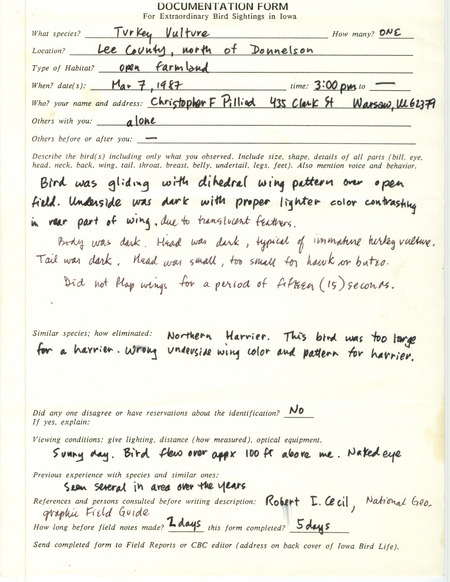 DOCUMENTATION FORM
For Extraordinary Bird Sightings in Iowa
What species? Turkey Vulture How many? ONE
Location? Lee County, north of Donnelson
Type of Habitat? open farmland
When? date(s): Mar 7, 1987 time: 3:00 pm to —
Who? your name and address: Christopher F Pilliod 435 Clark St Warsaw, Ill 62379
Others with you: alone
Others before or after you: —
Describe the bird(s) including only what you observed. Include size, shape, details of all parts (bill, eye,
head, neck, back, wing, tail, throat, breast, belly, undertail, legs, feet). Also mention voice and behavior.
Bird was gliding with dihedral wing pattern over open
field. Underside was dark with proper lighter color contrasting
in rear part of wing, due to translucent feathers.
Body was dark. Head was dark, typical of immature turkey vulture.
Tail was dark. Head was small, too small for hawk or buteo.
Did not flap wings for a period of fifteen (15) seconds.
Similar species; how eliminated: Northern Harrier. This bird was too large
for a harrier. Wrong underside wing color and pattern for harrier.
Did any one disagree or have reservations about the identification? No
If yes, explain:
Viewing conditions: give lighting, distance (how measured), optical equipment.
Sunny day. Bird flew over appx 100 ft above me. Naked eye
Previous experience with species and similar ones:
Seen several in area over the years
References and persons consulted before writing description: Robert I. Cecil, National Geo-
graphic Field Guide
How long before field notes made? 2 days this form completed? 5 days
Send completed form to Field Reports or CBC editor (address on back cover of Iowa Bird Life).